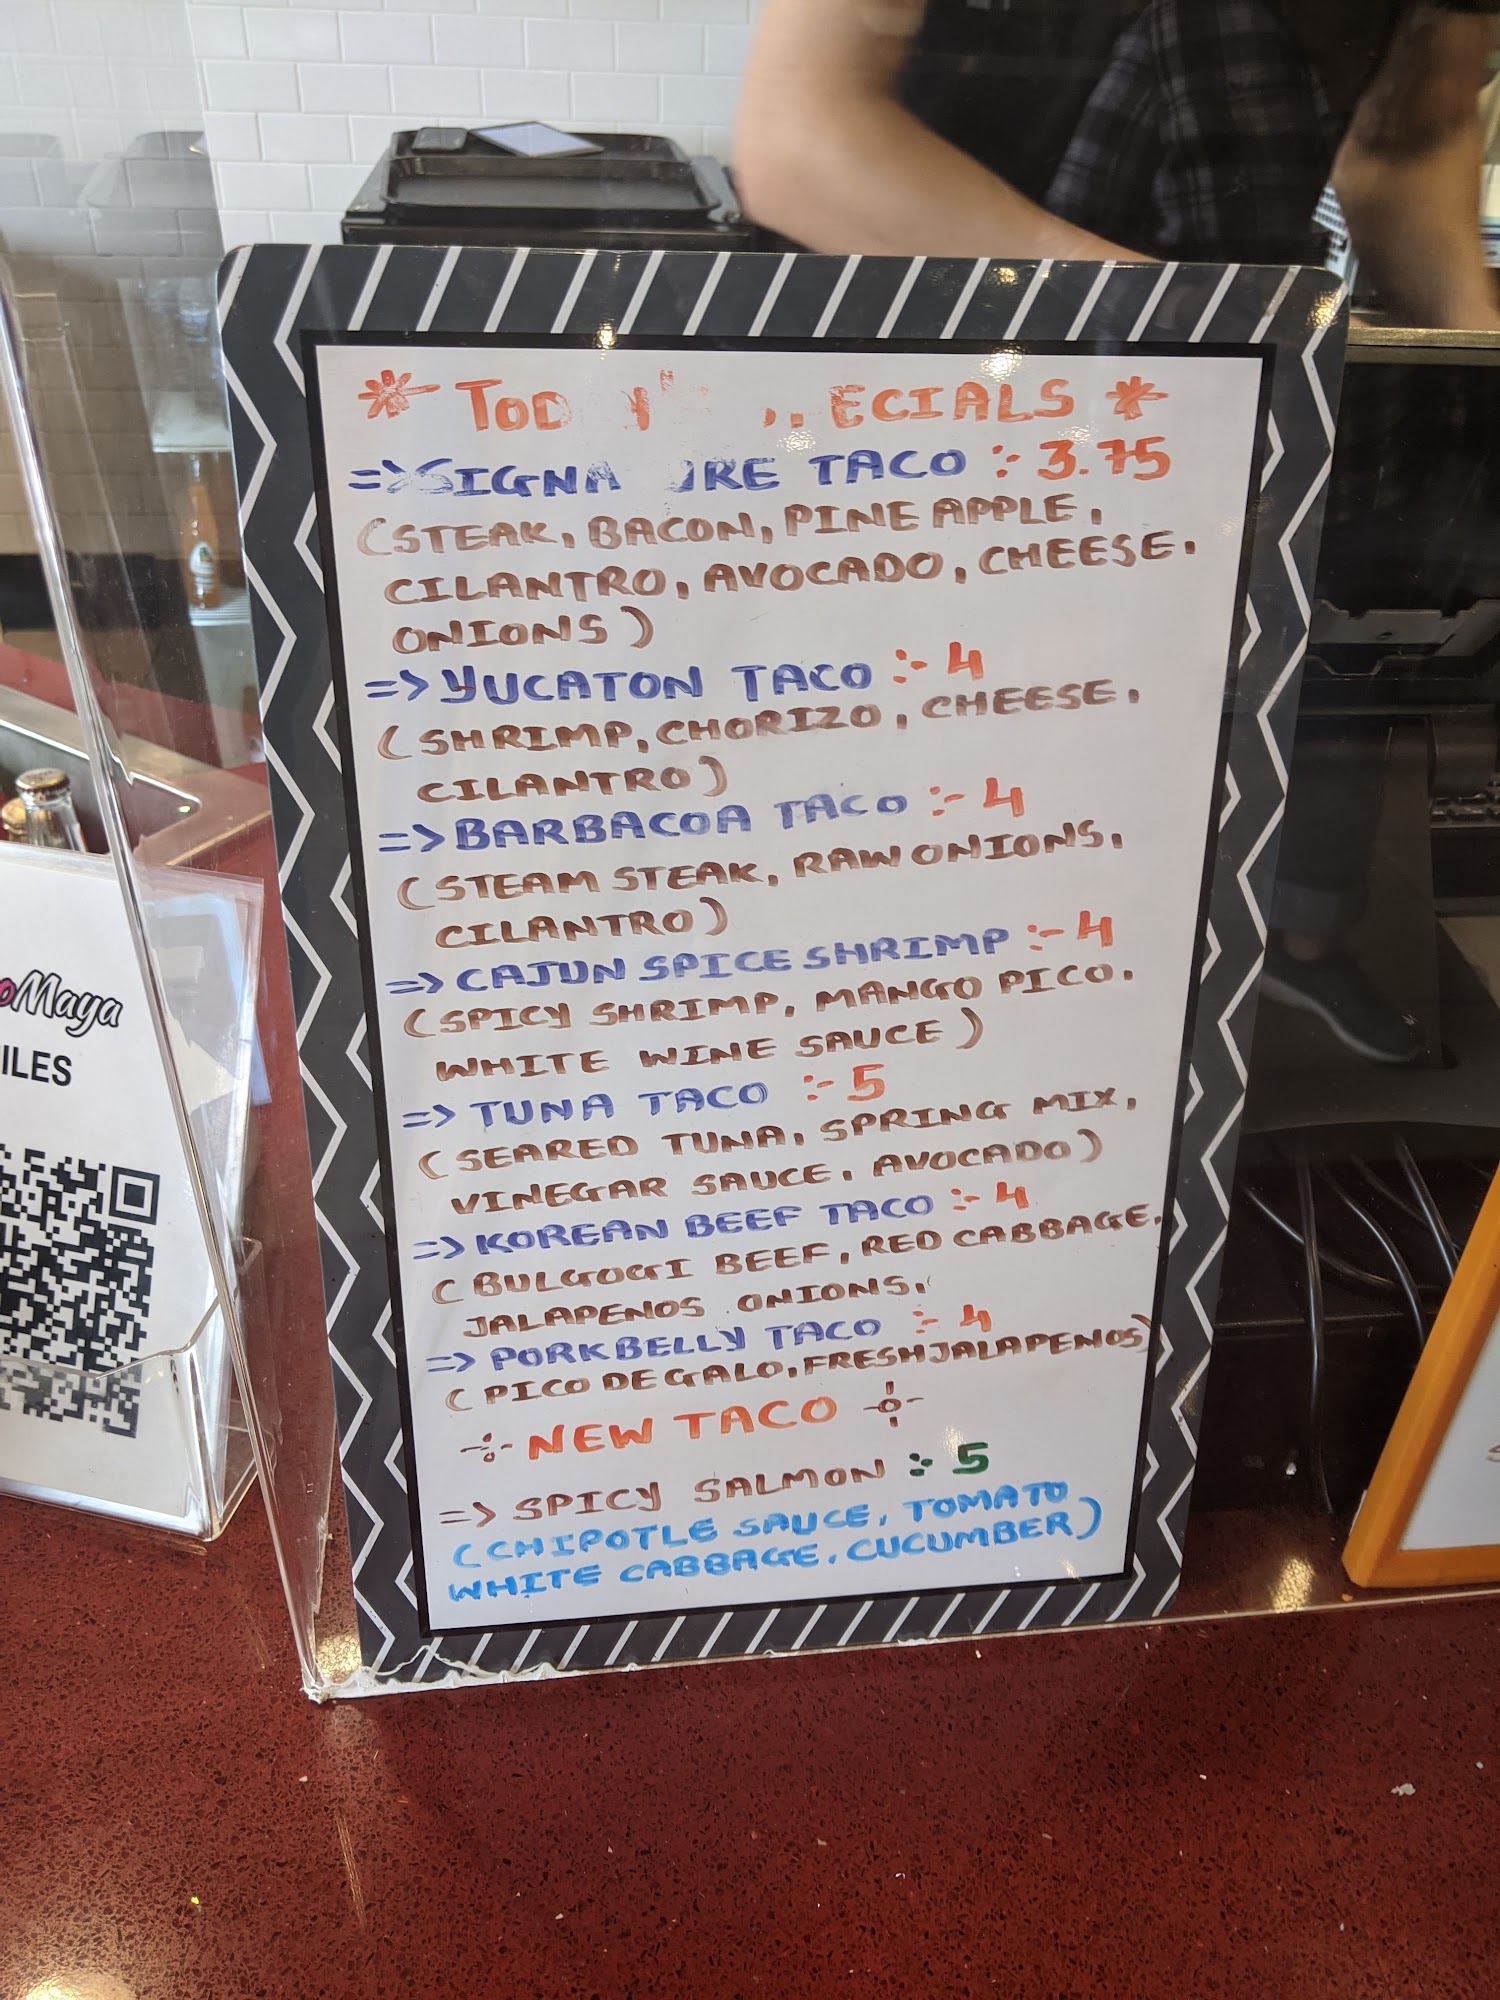 ECIALS
=> TACO :- 3.75
(STEAK, BACON, PINE APPLE,
CILANTRO, AVOCADO, CHEESE.
ONIONS)
=> YUCATON TACO :- 4
(SHRIMP, CHORIZO, CHEESE,
CILANTRO)
=> BARBACOA TACO :- 4
(STEAM STEAK, RAW ONIONS,
CILANTRO)
=> CAJUN SPICE SHRIMP :- 4
(SPICY SHRIMP, MANGO PICO.
WHITE WINE SAUCE)
=> TUNA TACO :- 5
(SEARED TUNA, SPRING MIX,
VINEGAR SAUCE, AVOCADO)
=> KOREAN BEEF TACO :- 4
(BULGOGI BEEF, RED CABBAGE,
JALAPENOS ONIONS,
=> PORKBELLY TACO :- 4
(PICO DE GALO, FRESH JALAPENOS)
NEW TACO
=> SPICY SALMON :- 5
(CHIPOTLE SAUCE, TOMATO
WHITE CABBAGE, CUCUMBER)
oMaya
ILES